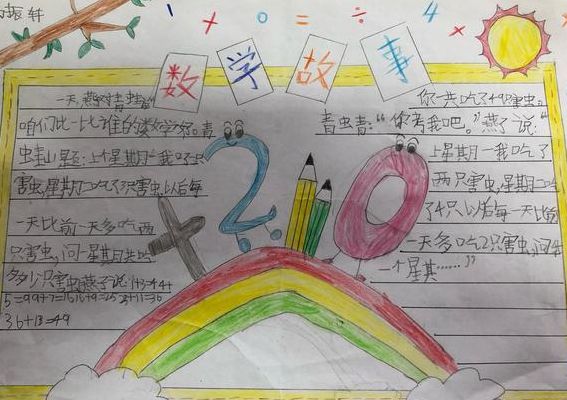 振轩
1 + 0 = ÷ 4 ×
数学故事
一天,燕对青蛙
咱们比一比谁的数学好。青
蛙出题:上个星期一我吃了只
害虫,星期二吃了只害虫以后每
一天比前一天多吃两
只害虫,问一星期共吃
多少只害虫燕子说:1+3=4 4+
5=9 9+7=16 16+9=25 25+11=36
36+13=49
+ 2 0
你一共吃了49只害虫。
青虫青:“你考我吧。”燕子说:“
上星期一我吃了
两只害虫,星期二吃
了4只以后每一天比前
一天多吃2只害虫,问
一个星其……”